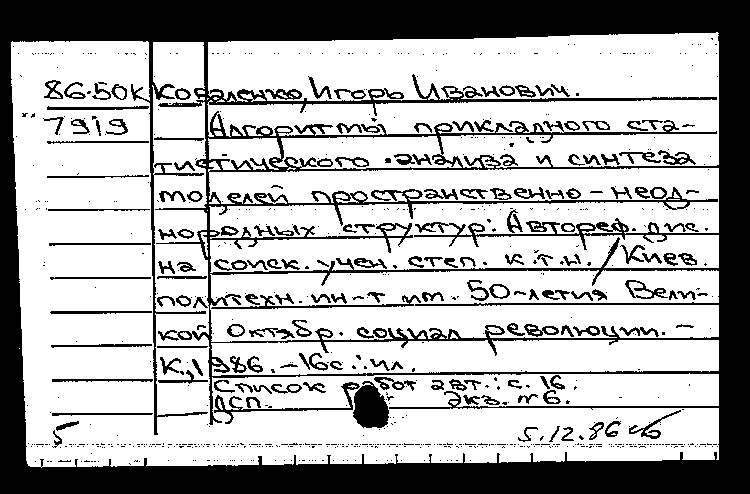 86-50К Коваленко, Игорь Иванович.
7919 Алгоритмы прикладного ста-
тистического анализа и синтеза
моделей пространственно-неод-
нородных структур: Автореф. дис.
на соиск. учен. степ. к.т.н. / Киев.
политехн. ин-т им. 50-летия Вели-
кой Октябр. социал революции. -
К., 1986. - 16с.: ил.
Список работ авт.: с. 16.
ДСП. Экз. №6.
5 5.12.86